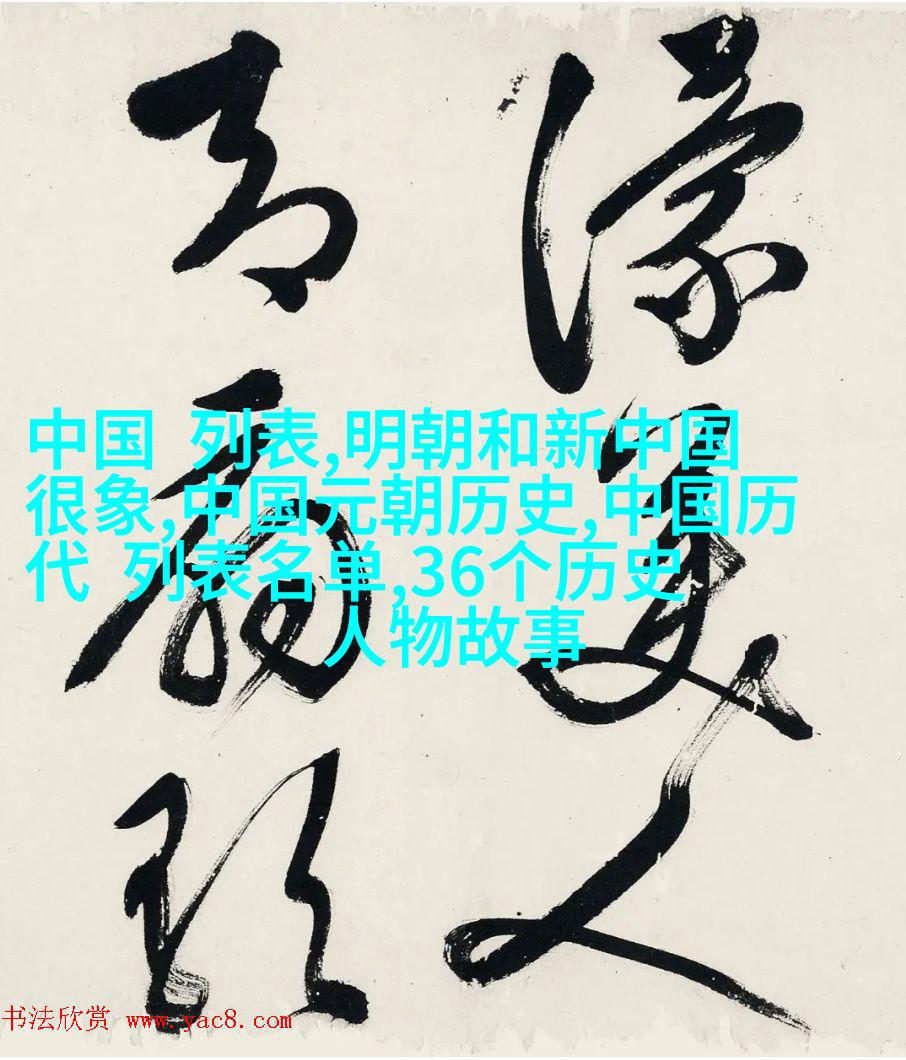 濛美人
中国 列表,明朝和新中国
很象,中国元朝历史,中国历
代 列表名单,36个历史
人物故事
书法欣赏 www.yac8.com